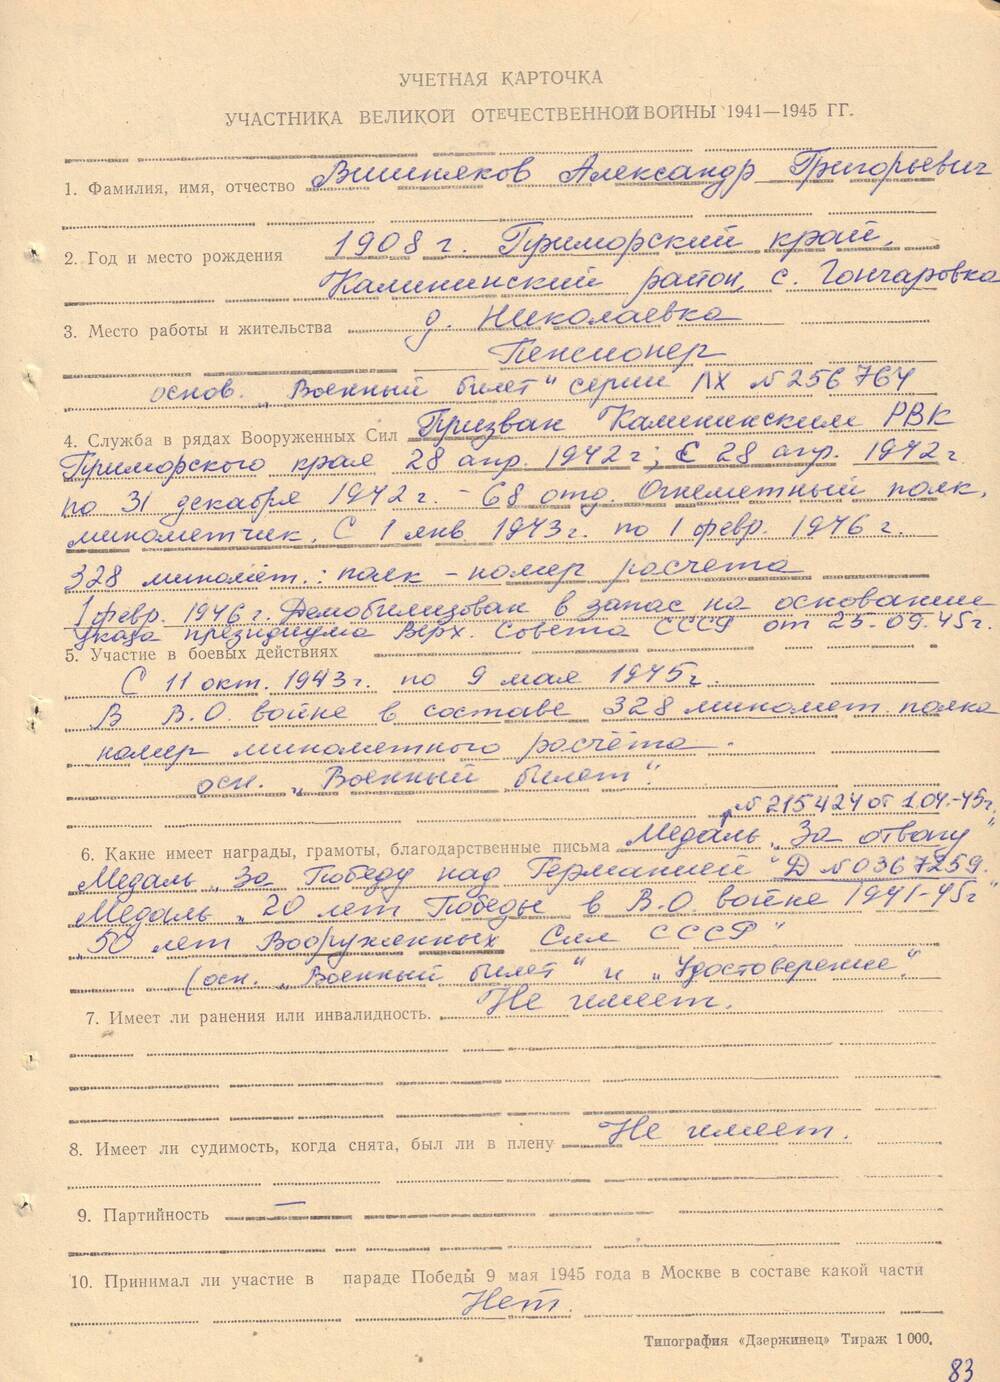 УЧЕТНАЯ КАРТОЧКА
УЧАСТНИКА ВЕЛИКОЙ ОТЕЧЕСТВЕННОЙ ВОЙНЫ 1941—1945 ГГ.
1. Фамилия, имя, отчество Вишняков Александр Григорьевич
2. Год и место рождения 1908 г. Приморский край,
Калининский район, с. Гончаровка
3. Место работы и жительства д. Николаевка
Пенсионер
основ. „Военный билет" серии ЛХ № 256764
4. Служба в рядах Вооруженных Сил Призван Калининским РВК
Приморского края 28 апр. 1942 г; С 28 апр. 1942 г
по 31 декабря 1942 г. - 68 отд. Огнеметный полк,
минометчик. С 1 янв. 1943 г. по 1 февр. 1946 г.
328 миномёт.: полк - номер расчета
1 февр. 1946 г. Демобилизован в запас на основании
указа президиума Верх. Совета СССР от 25-09.45 г.
5. Участие в боевых действиях
С 11 окт. 1943 г. по 9 мая 1945 г.
В В.О. войне в составе 328 миномет. полка
номер минометного расчёта.
осн. „Военный билет".
№ 215424 от 1.04.-45 г.
6. Какие имеет награды, грамоты, благодарственные письма Медаль „За отвагу"
Медаль „За Победу над Германией" Д № 0367259.
Медаль „20 лет Победы в В.О. войне 1941-45 г"
„50 лет Вооруженных Сил СССР"
(осн. „Военный билет" и „Удостоверение".
7. Имеет ли ранения или инвалидность. Не имеет.
8. Имеет ли судимость, когда снята, был ли в плену Не имеет.
9. Партийность —
10. Принимал ли участие в параде Победы 9 мая 1945 года в Москве в составе какой части
Нет.
Типография «Дзержинец» Тираж 1 000.
83